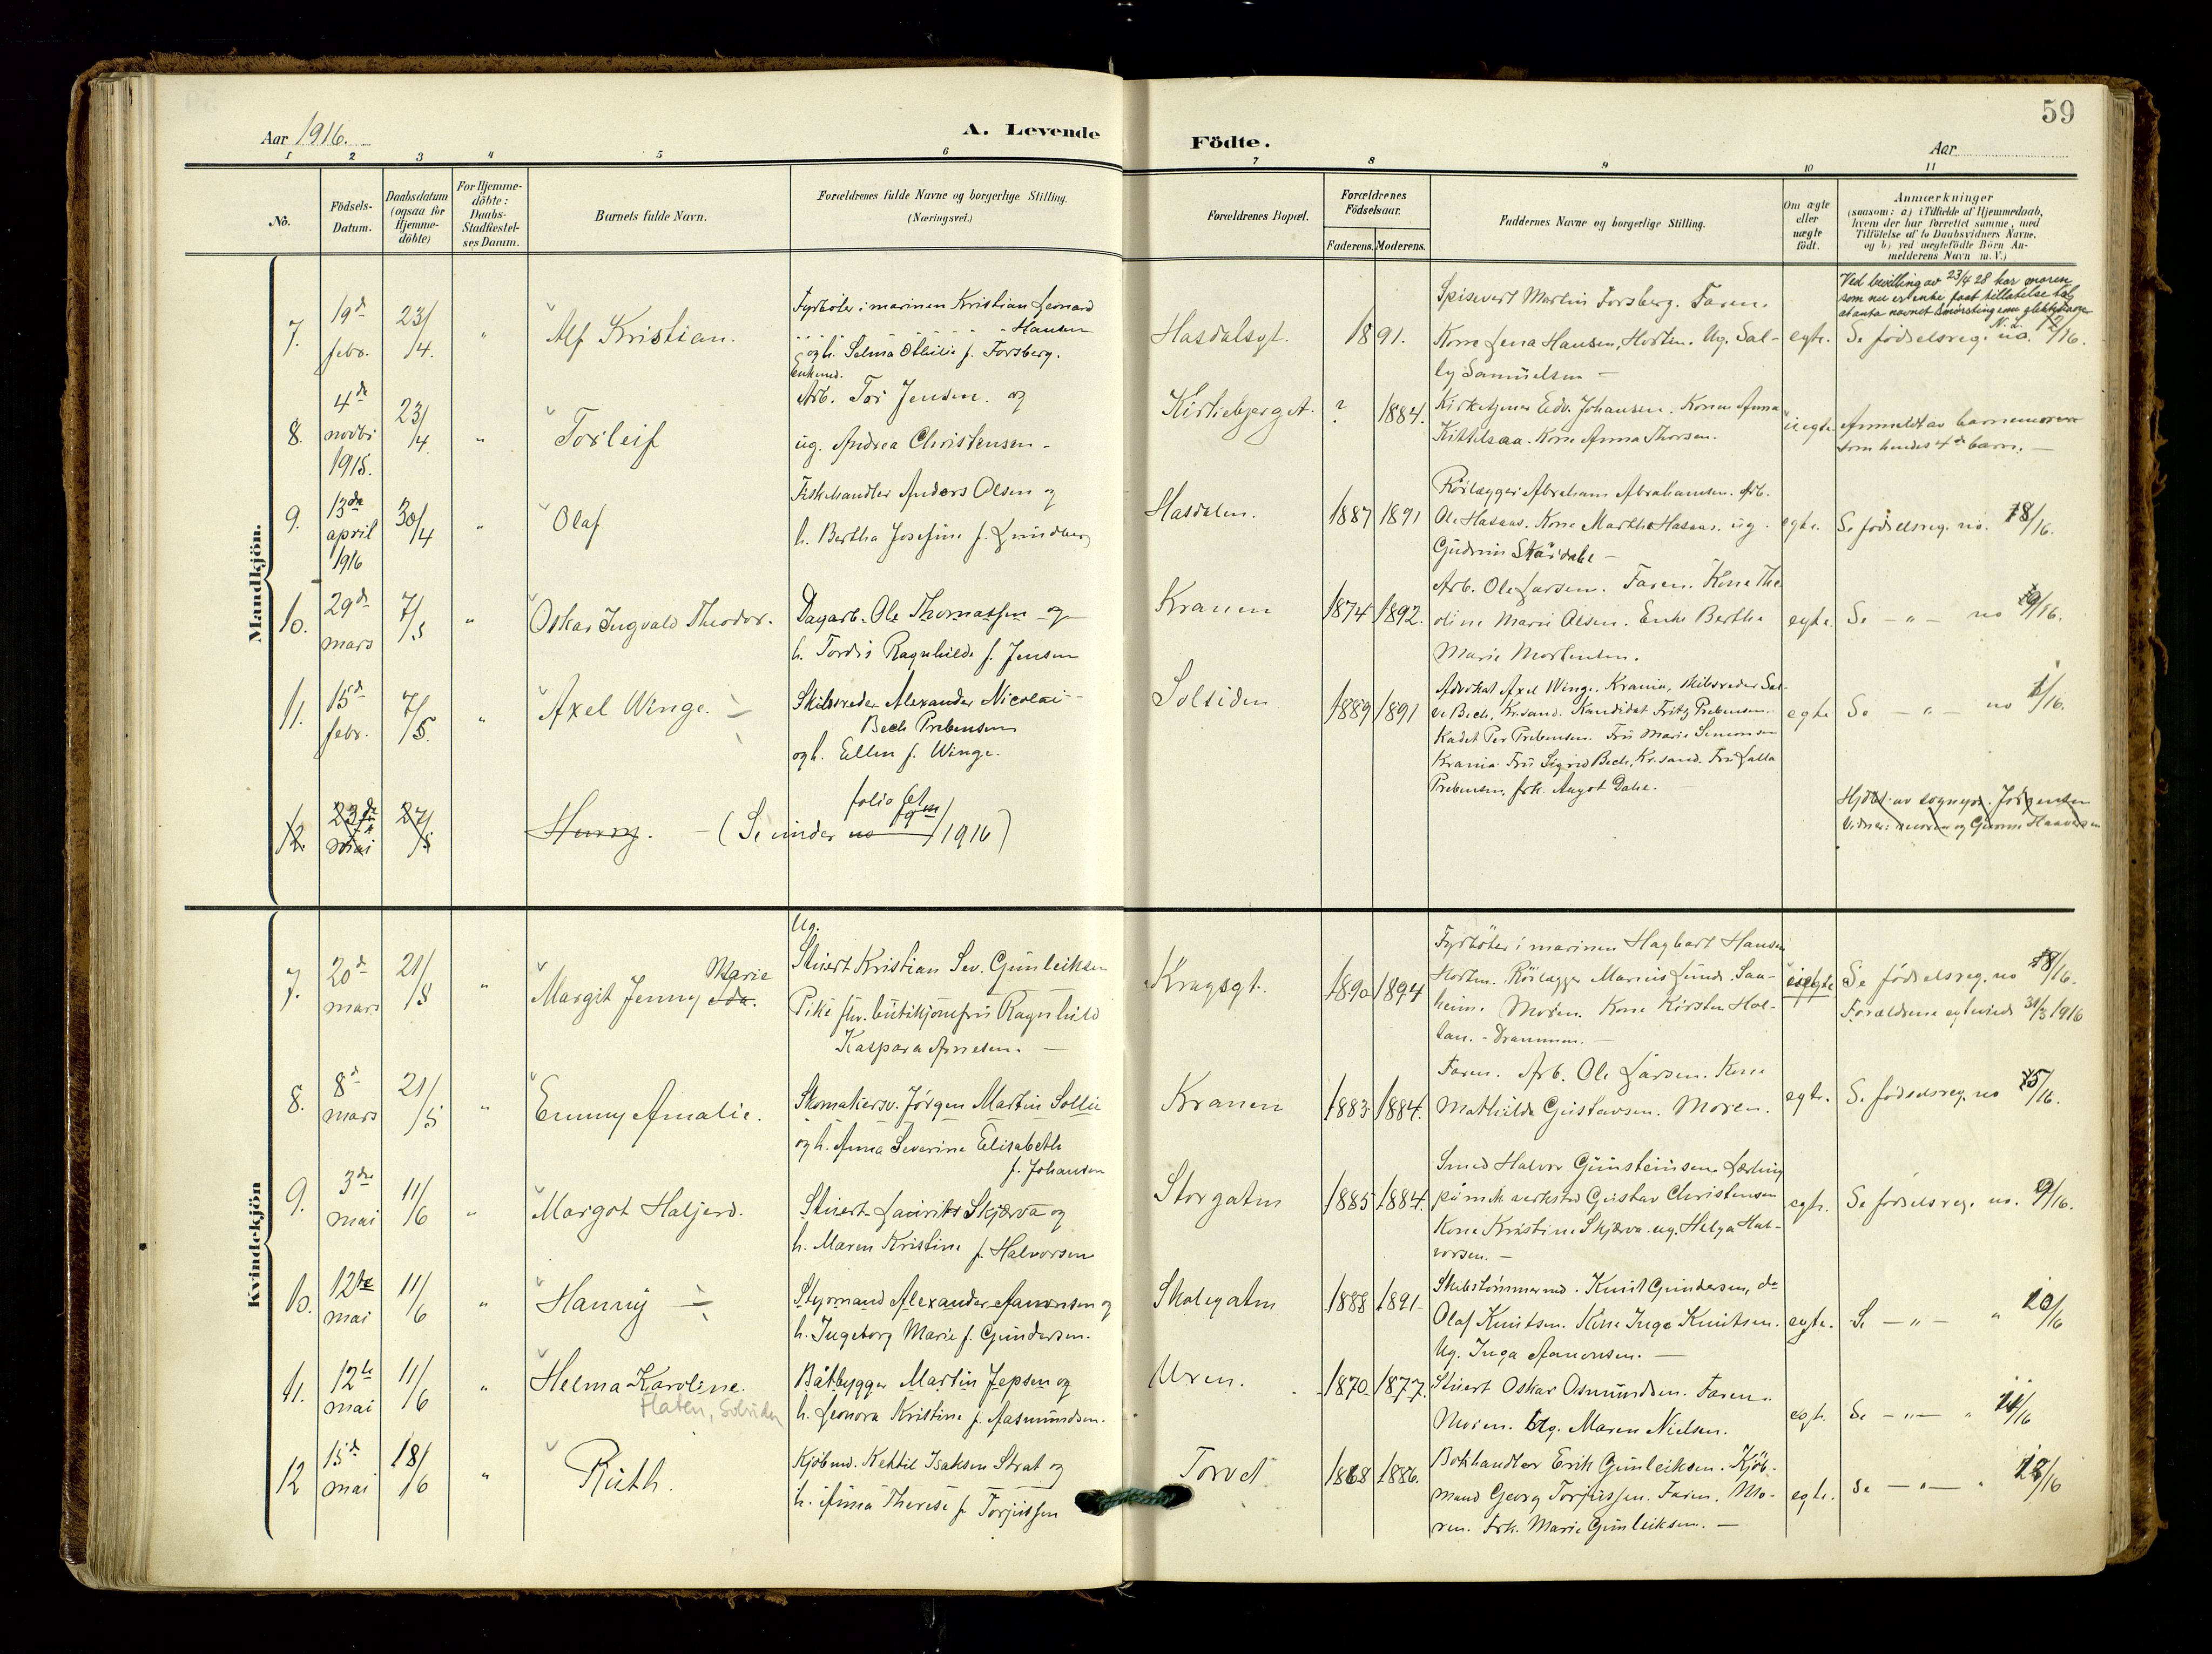 59
Aar 1916.
A. Levende
Födte.
Aar
1 2 3 4 5 6 7 8 9 10 11
No.
Födsels-
Datum.
Daabsdatum
(ogsaa for
Hjemme-
döbte)
For Hjemme-
döbte:
Daabs-
Stadfæstel-
ses Datum.
Barnets fulde Navn.
Forældrenes fulde Navne og borgerlige Stilling.
(Næringsvei.)
Forældrenes Bopæl.
Forældrenes
Födselsaar.
Faderens. Moderens.
Faddernes Navne og borgerlige Stilling.
Om ægte
eller
uægte
födt.
Anmærkninger
(saasom: a) i Tilfælde af Hjemmedaab,
hvem der har forrettet samme, med
Tilföielse af to Daabsvidners Navne,
og b) ved uægtefödte Börn An-
melderens Navn m. V.)
Mandkjön.
7.
19de
febr.
23/4.
"
Alf Kristian.
Fyrböter i marinen Kristian Leonard
Hansen
og h. Selma Othilie f. Forsberg.
Hasdalsgt.
1891.
Spisevert Martin Forsberg. Faren.
Kone Lena Hansen, Horten. Ug. Sal-
ly Samuelsen —
egte.
Ved bevilling av 23/4 28 har moren
som nu er enke faat tillatelse til
at anta navnet
Se fødselsreg. no. /16.
8.
4de
novbr
1915.
23/4.
"
Torleif
Arb. Tor Jensen. og
ug. Andrea Christensen -
Kirkebjerget.
? 1884.
Kirketjener Edv. Johansen. Konen Anna
Kittelsaa. Kone Anna Thorsen.
uegte.
Anmeldt av barnemoren
som hendes 4de barn. —
9.
13de
april
1916
30/4
"
Olaf
Fiskehandler Anders Olsen og
h. Bertha Josefine f. Lundberg
Hasdalen.
1887 1891
Rörlægger Abraham Abrahamsen. Arb.
Ole Hasaas. Kone Marthe Hasaas. ug.
Gudrun Skårdale —
egte.
Se fødselsreg. no. 8/16.
10.
29de
mars
7/5
"
Oskar Ingvald Theodor.
Dagarb. Ole Thomassen og
h. Tordis Ragnhilde f. Jensen
Kranen
1874 1892.
Arb. Ole Larsen. Faren. Kone The-
oline Marie Olsen. Enke Berthe
Marie Mortensen.
egte.
Se — " — no 9/16.
11.
15de
febr.
7/5.
"
Axel Winge.
Skibsreder Alexander Nicolai
Bech Prebensen
og h. Ellen f. Winge.
Solsiden
1889 1891
Advokat Axel Winge, Krania, skibsreder Sal-
ve Bech, Kr.sand. Kandidat Fritz Prebensen.
Kadet Per Prebensen. Fru Marie Simonsen
Krania. Fru Sigrid Bech, Kr.sand. Fru Lalla
Prebensen. frk. Aagot Dahl. —
egte
Se — " — no 1/16.
12.
23de
mai
27/5
Harry. — (Se under no /1916)
folio
Hjdbt. av sognepr. Jörgensen
Vidner: moren og Gunvor Haavorsen
Kvindekjön
7.
20de
mars
21/5
"
Margit Jenny Ada.
Marie
Ug.
Stuert Kristian Sev. Gunleiksen
Pike fhv. butikjomfru Ragnhild
Kaspara Arnesen. —
Kragsgt.
1890 1894
Fyrböter i marinen Hagbart Hansen
Horten. Rörlægger Marius Lunde. San-
heim. Moren. Kone Kirsten Hol-
tan. - Drammen. —
uegte
Se fødselsreg. no 8/16.
Forældrene egteviede 31/3 1916
8.
8de
mars
21/5
"
Emmy Amalie.
Skomakersv. Jörgen Martin Sollie
og h. Anna Severine Elisabeth
f. Johansen
Kranen
1883 1884.
Faren. Arb. Ole Larsen. Kone
Mathilde Gustavsen. Moren.
egte.
Se fødselsreg. no 5/16.
9.
3die
mai
11/6
"
Margot Haljerd.
Stuert Laurits Skjærva og
h. Maren Kristine f. Halvorsen
Storgaten
1885 1884.
Smed Halvor Gunsteinsen. Lærling
på mek verksted Gustav Christensen
Kone Kristine Skjærva. ug. Helga Hal-
vorsen. —
egte.
Se fødselsreg. no. 9/16.
10.
12te
mai
11/6
"
Hanny
Styrmand Alexander Aanonsen og
h. Ingeborg Marie f. Gundersen.
Skolegaten
1888 1891
Skibstömmermd. Knut Gundersen, do
Olaf Knutsen. Kone Inga Knutsen.
Ug. Inga Aanonsen. —
egte.
Se — " — " 10/16
11.
12te
mai
11/6
"
Helma Karoline.
Flaten,
Båtbygger Martin Jepsen og
h. Leonora Kristine f. Aasmundsen.
Uren.
1870 1877.
Stuert Oskar Osmundsen. Faren.
Moren. Ug. Maren Nielsen.
egte.
Se — " — " 11/16
12
15de
mai
18/6
"
Ruth.
Kjöbmd. Kettil Isaksen Strat og
h. Anna Therese f. Torjussen
Torvet
1868 1886.
Bokhandler Erik Gunleiksen. Kjöb-
mand Georg Torjussen. Faren. Mo-
ren. Frk. Marie Gunleiksen. —
egte.
Se — " — " 12/16